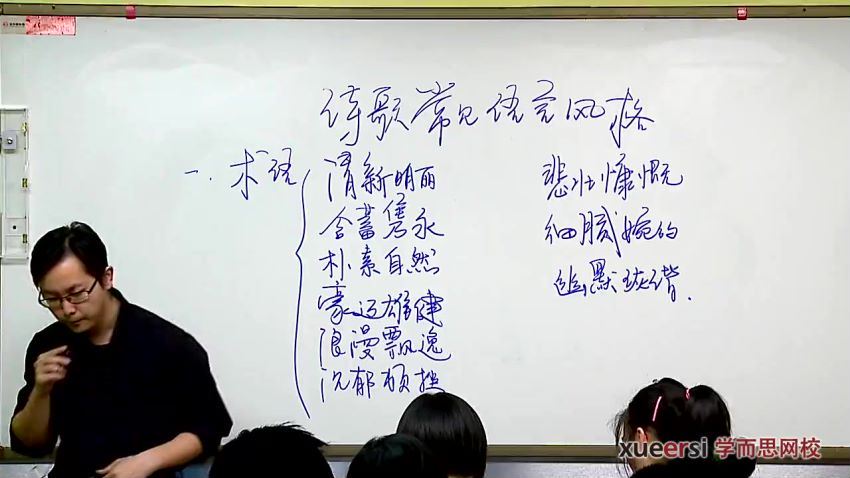 诗歌常见语言风格
一. 术语
清新明丽
含蓄隽永
朴素自然
豪迈雄健
浪漫飘逸
沉郁顿挫
悲壮慷慨
细腻婉约
幽默诙谐.
xueersi 学而思网校